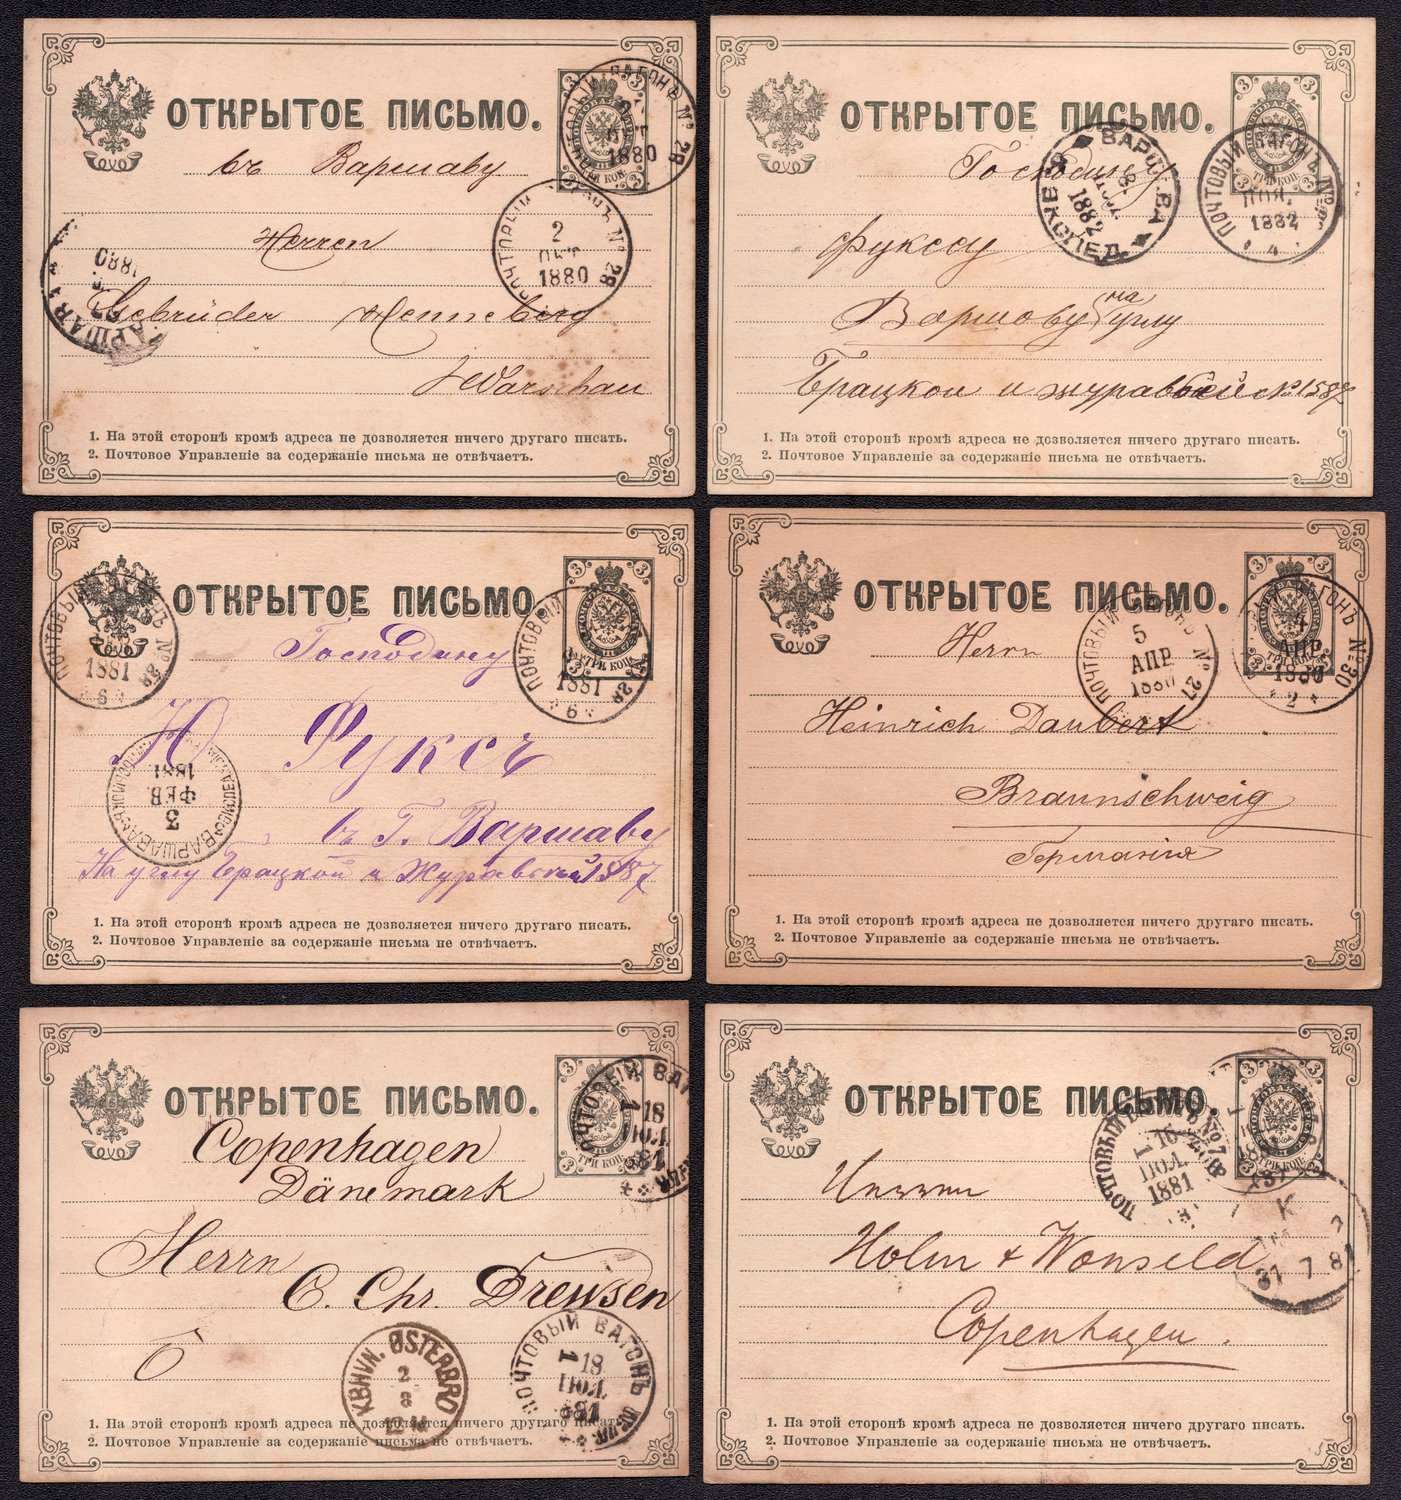 ОТКРЫТОЕ ПИСЬМО.
3 3
ТРИ КОП.
3 3
ПОЧТОВЫЙ ВАГОНЪ № 28
ОКТ
1880
въ Варшаву
ПОЧТОВЫЙ ВАГОНЪ № 28
2
ОКТ
1880
Herren
1880
Gebrüder Henneberg
Warschau
1. На этой сторонѣ кромѣ адреса не дозволяется ничего другаго писать.
2. Почтовое Управленіе за содержаніе письма не отвѣчаетъ.
ОТКРЫТОЕ ПИСЬМО.
3 3
ТРИ КОП.
3 3
ПОЧТОВЫЙ ВАГОНЪ №
НОЯ.
1882
4
Господину
ВАРШАВА
ЭКСПЕД.
1882
Фуксу
Варшову на углу
Брацкои и журавьей № 1587
1. На этой сторонѣ кромѣ адреса не дозволяется ничего другаго писать.
2. Почтовое Управленіе за содержаніе письма не отвѣчаетъ.
ОТКРЫТОЕ ПИСЬМО.
3 3
ТРИ КОП.
ПОЧТОВЫЙ ВАГОНЪ № 28
1881
6
ПОЧТОВЫЙ № 28
1881
6
Господину
Ю Фуксъ
3
ФЕВ.
1881
ВАРШАВА
въ Г. Варшаву
На углу Брацкой и Журавской 1587
1. На этой сторонѣ кромѣ адреса не дозволяется ничего другаго писать.
2. Почтовое Управленіе за содержаніе письма не отвѣчаетъ.
ОТКРЫТОЕ ПИСЬМО.
3 3
ТРИ КОП.
ВАГОНЪ № 30
4
АПР
1880
2
ПОЧТОВЫЙ ВАГОНЪ № 27
5
АПР
1880
Herrn
Heinrich Daubert
Braunschweig
Германія
1. На этой сторонѣ кромѣ адреса не дозволяется ничего другаго писать.
2. Почтовое Управленіе за содержаніе письма не отвѣчаетъ.
ОТКРЫТОЕ ПИСЬМО.
3
ТРИ КОП.
3
ПОЧТОВЫЙ ВАГОНЪ
1 18
ІЮЛ.
1881
Copenhagen
Dänemark
Herrn
C. Chr. Drewsen
Ô
KBHVN. ØSTERBRO
2
8
ПОЧТОВЫЙ ВАГОНЪ
1 18
ІЮЛ.
1881
1. На этой сторонѣ кромѣ адреса не дозволяется ничего другаго писать.
2. Почтовое Управленіе за содержаніе письма не отвѣчаетъ.
ОТКРЫТОЕ ПИСЬМО.
3 3
ТРИ КОП.
ПОЧТОВЫЙ
1 16
ІЮЛ.
1881
K
31 7 81
Holm & Wonseld
Copenhagen.
1. На этой сторонѣ кромѣ адреса не дозволяется ничего другаго писать.
2. Почтовое Управленіе за содержаніе письма не отвѣчаетъ.